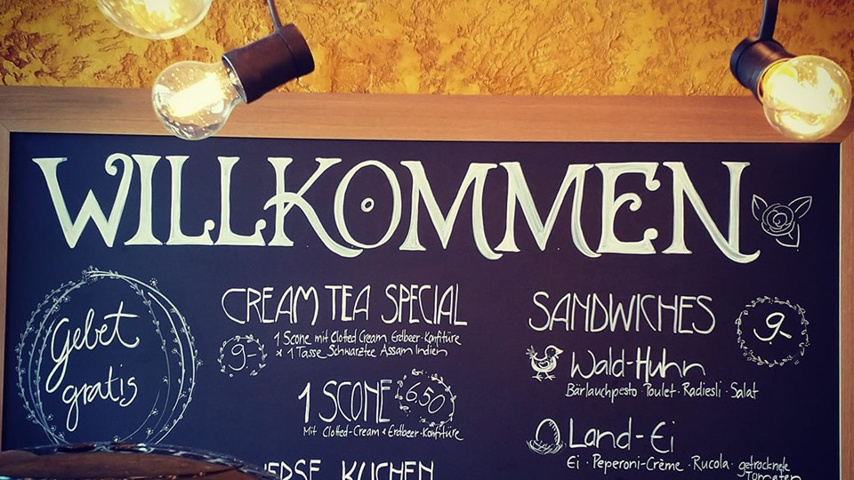 WILLKOMMEN
Gebet
gratis
CREAM TEA SPECIAL
9.-
1 Scone mit Clotted Cream, Erdbeer-Konfitüre
+ 1 Tasse Schwarztee Assam Indien
1 SCONE 6.50
Mit Clotted-Cream + Erdbeer-Konfitüre
KUCHEN
SANDWICHES 9.-
Wald-Huhn
Bärlauchpesto · Poulet · Radiesli · Salat
Land-Ei
Ei · Peperoni-Crème · Rucola · getrocknete
Tomaten